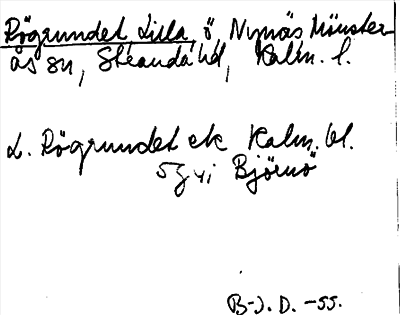 Rögrundet, Lilla, ö, Nynäs Mönster-
ås sn, Stranda hd, Kalm. l.
L. Rögrundet ek Kalm. bl.
5g4i Björnö
B-J. D. -55.